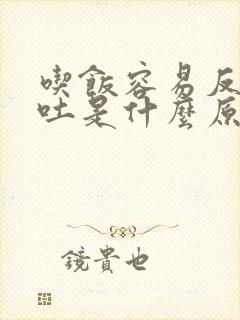 喫飯容易反
吐是什麼原
鏡貴也